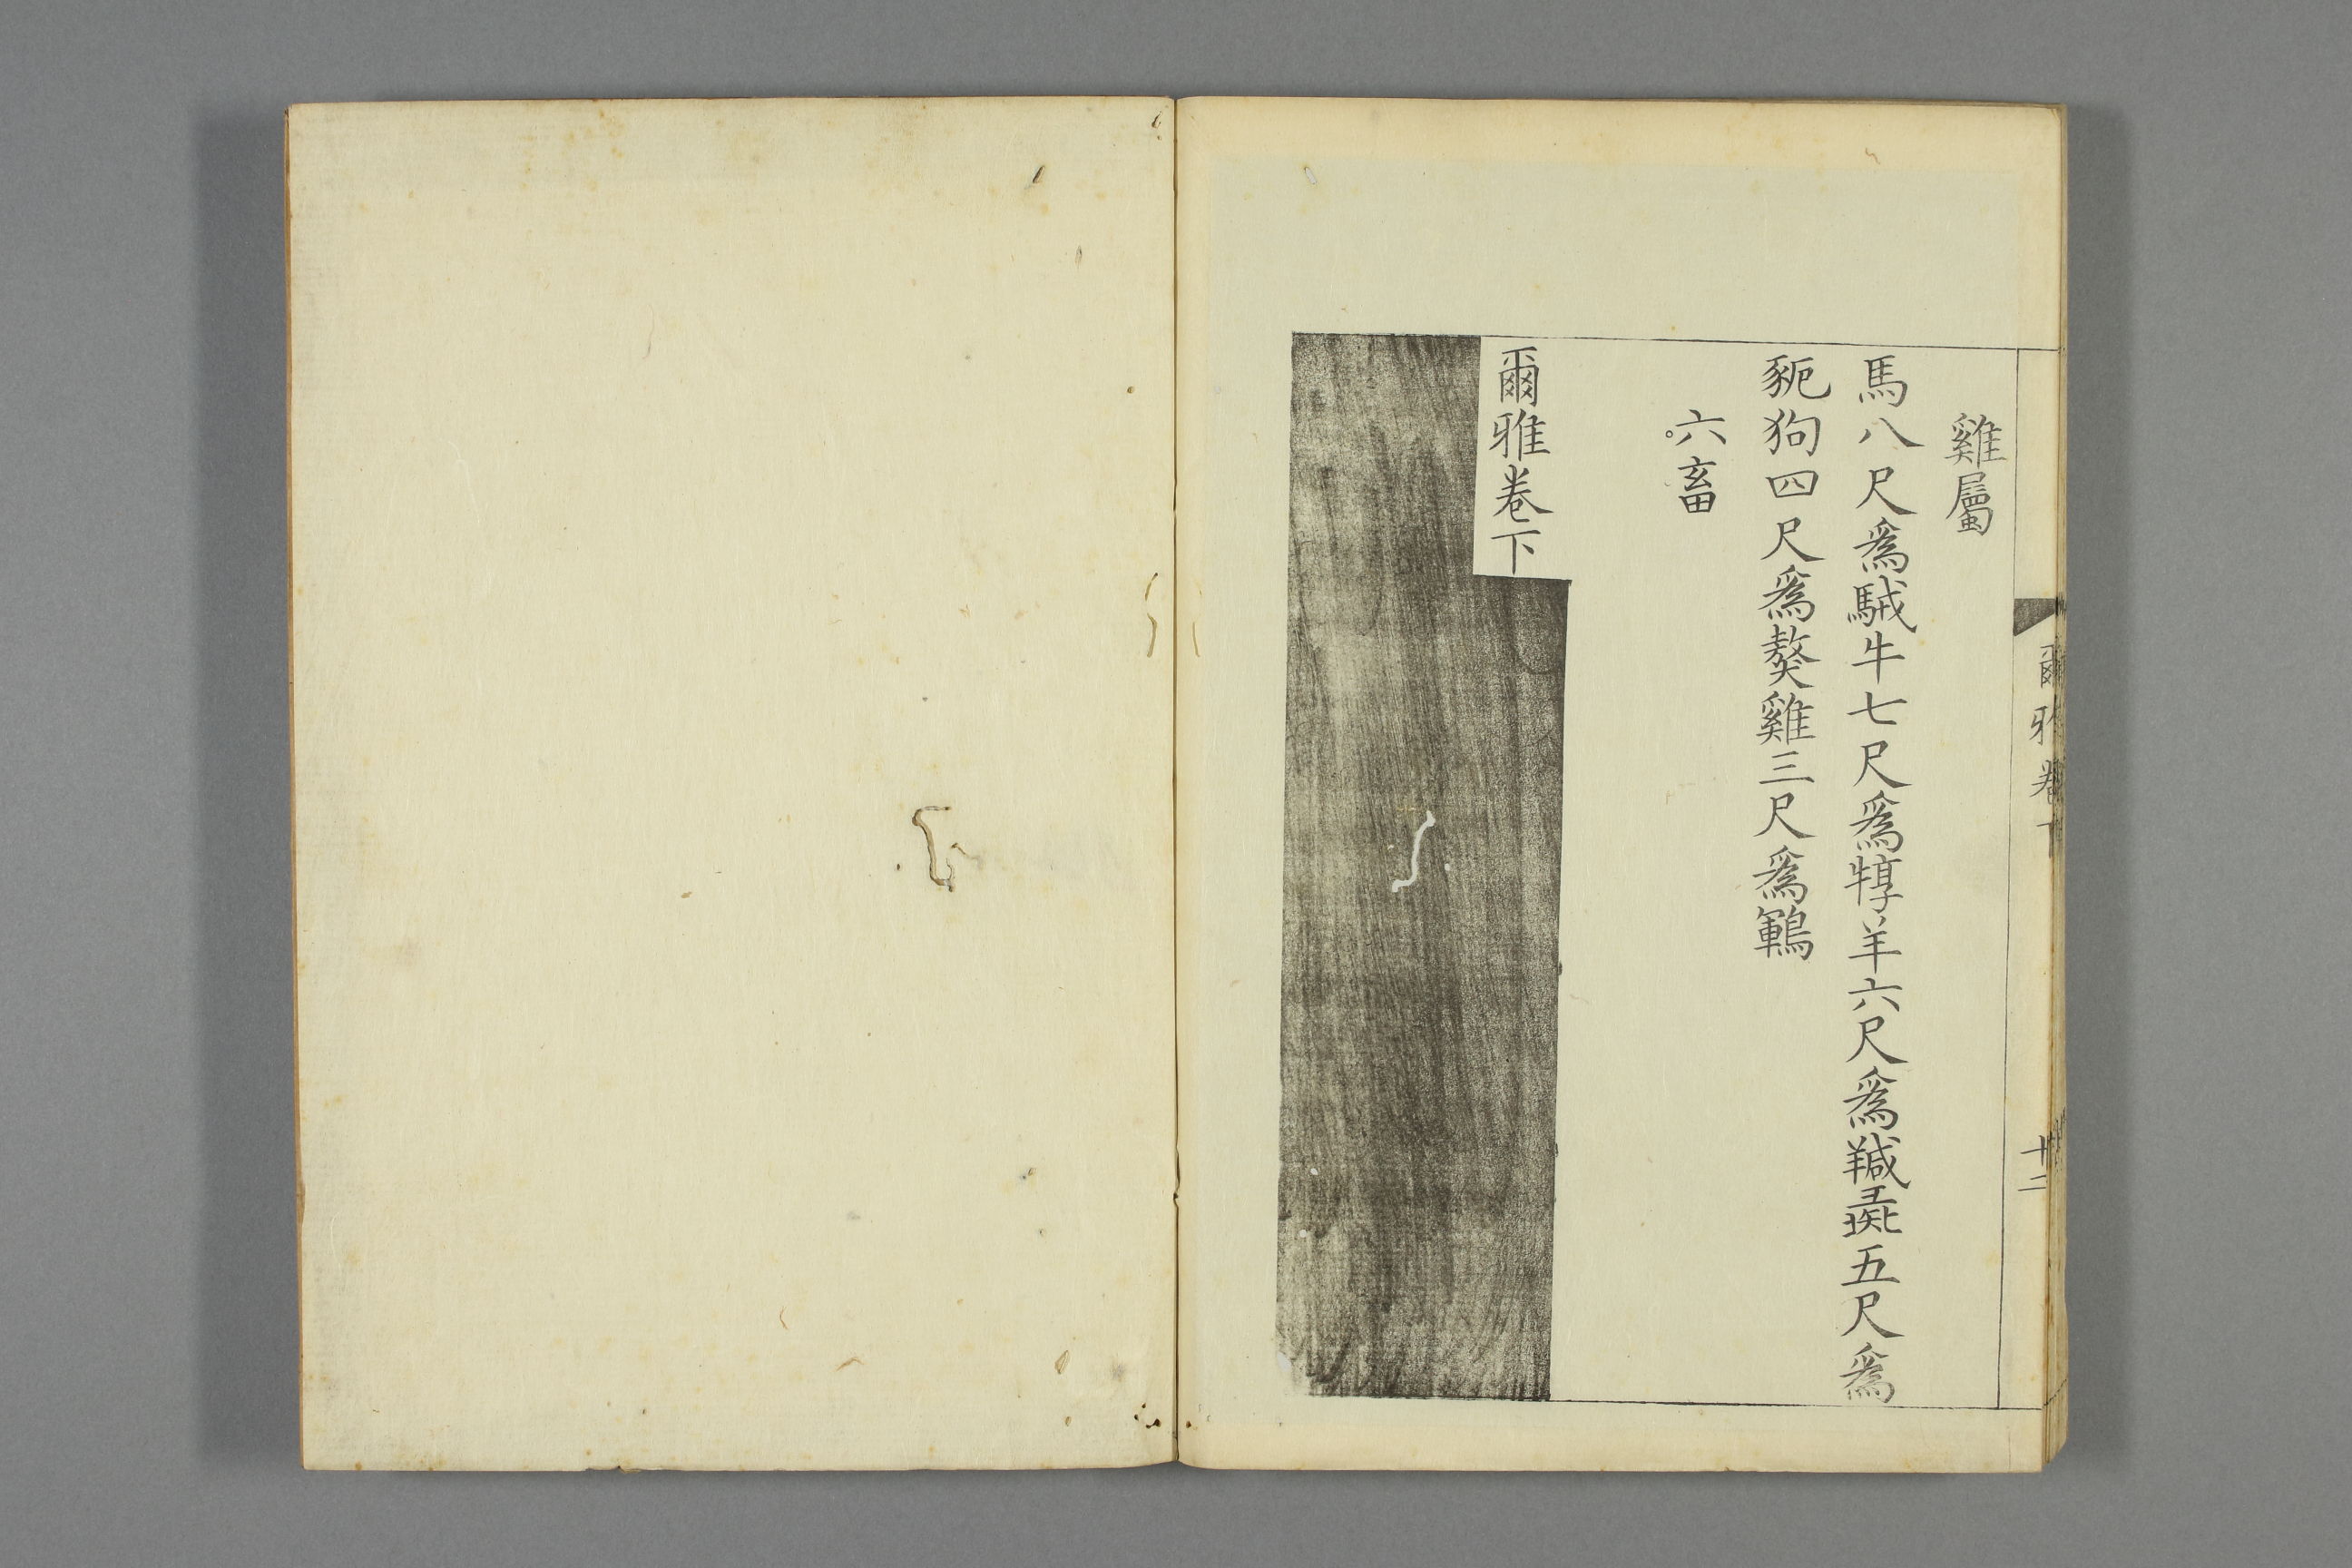 雞屬
馬八尺爲駥牛七尺爲犉羊六尺爲羬彘五尺爲
豟狗四尺爲獒雞三尺爲鶤
六畜
爾雅卷下
爾雅卷下
十二